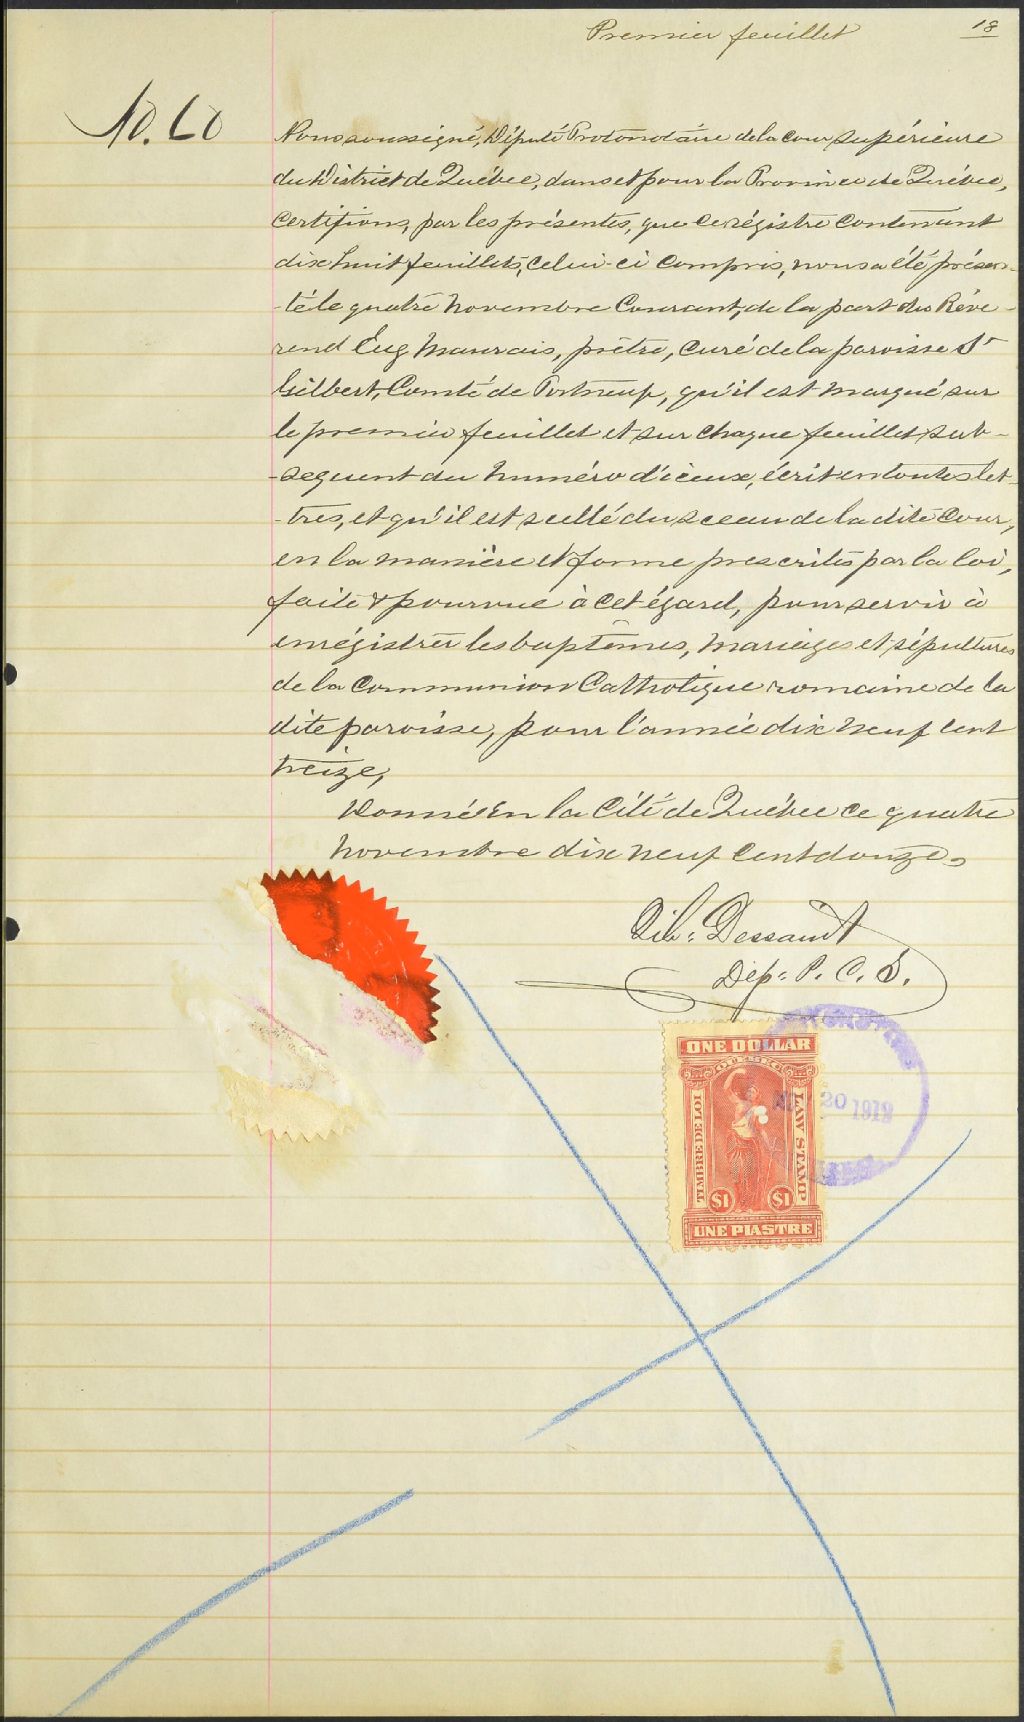 Premier feuillet
18
Nous soussigné, Député Protonotaire de la cour supérieure
du District de Québec, dans et pour la Province de Québec,
certifions, par les présentes, que ce régistre contenant
dix huit feuillets, celui-ci compris, nous a été présen-
-té le quatre novembre courant, de la part du Révé-
rend Eug Maurais, prêtre, curé de la paroisse St
Gilbert, Comté de Portneuf, qu'il est marqué sur
le premier feuillet et sur chaque feuillet sub-
-sequent du numéro d'iceux, écrit en toutes let-
-tres, et qu'il est scellé du sceau de la dite cour,
en la manière et forme prescrites par la loi,
faite & pourvue à cet égard, pour servir à
enrégistrer les baptêmes, mariages et sépultures
de la communion Catholique romaine de la
dite paroisse, pour l'année dix neuf cent
treize,
Donné en la Cité de Québec ce quatre
novembre dix neuf cent douze.
Dessault
Dép: P. C. S.
ONE DOLLAR
QUEBEC
TIMBRE DE LOI
LAW STAMP
20 1912
$1 $1
UNE PIASTRE